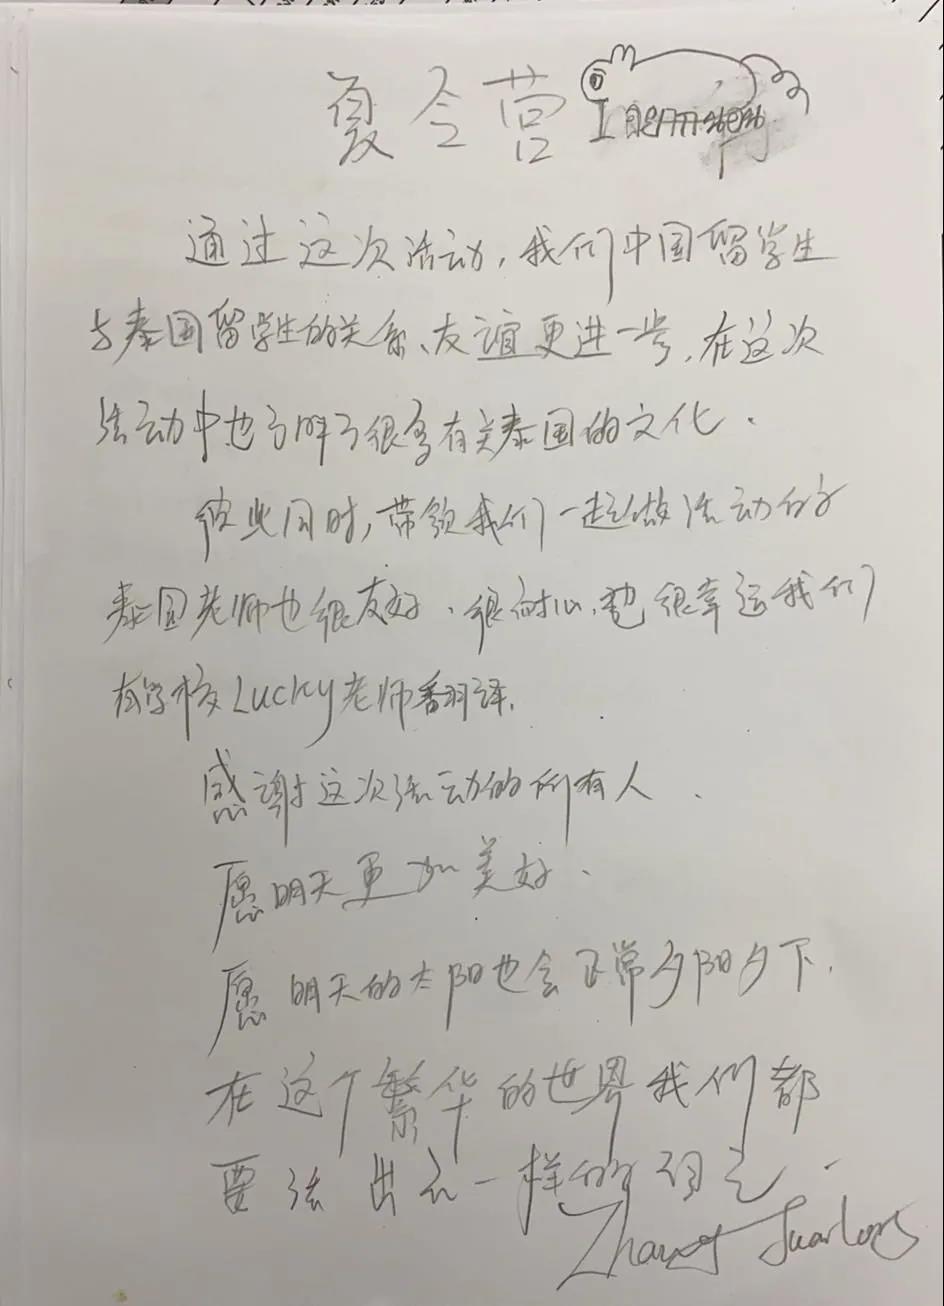 夏令营
通过这次活动,我们中国留学生
与泰国留学生的关系、友谊更进一步,在这次
活动中也了解了很多有关泰国的文化.
彼此同时,带领我们一起做活动的
泰国老师也很友好.很耐心,也很幸运我们
有学校Lucky老师翻译.
感谢这次活动的所有人.
愿明天更加美好.
愿明天的太阳也会正常夕阳夕下.
在这个繁华的世界我们都
要活出不一样的自己.
Zhang